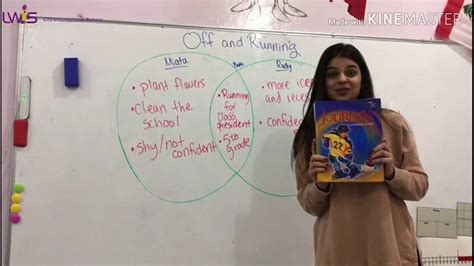 LWIS
Made with KINEMASTER
Off and Running
Miata
Both
Rudy
• plant flowers
• Clean the
school
• shy/not
confident
• Running
for
Class
president
• 5th
grade
• more ice
and recess
• confident
JOURNEYS
27